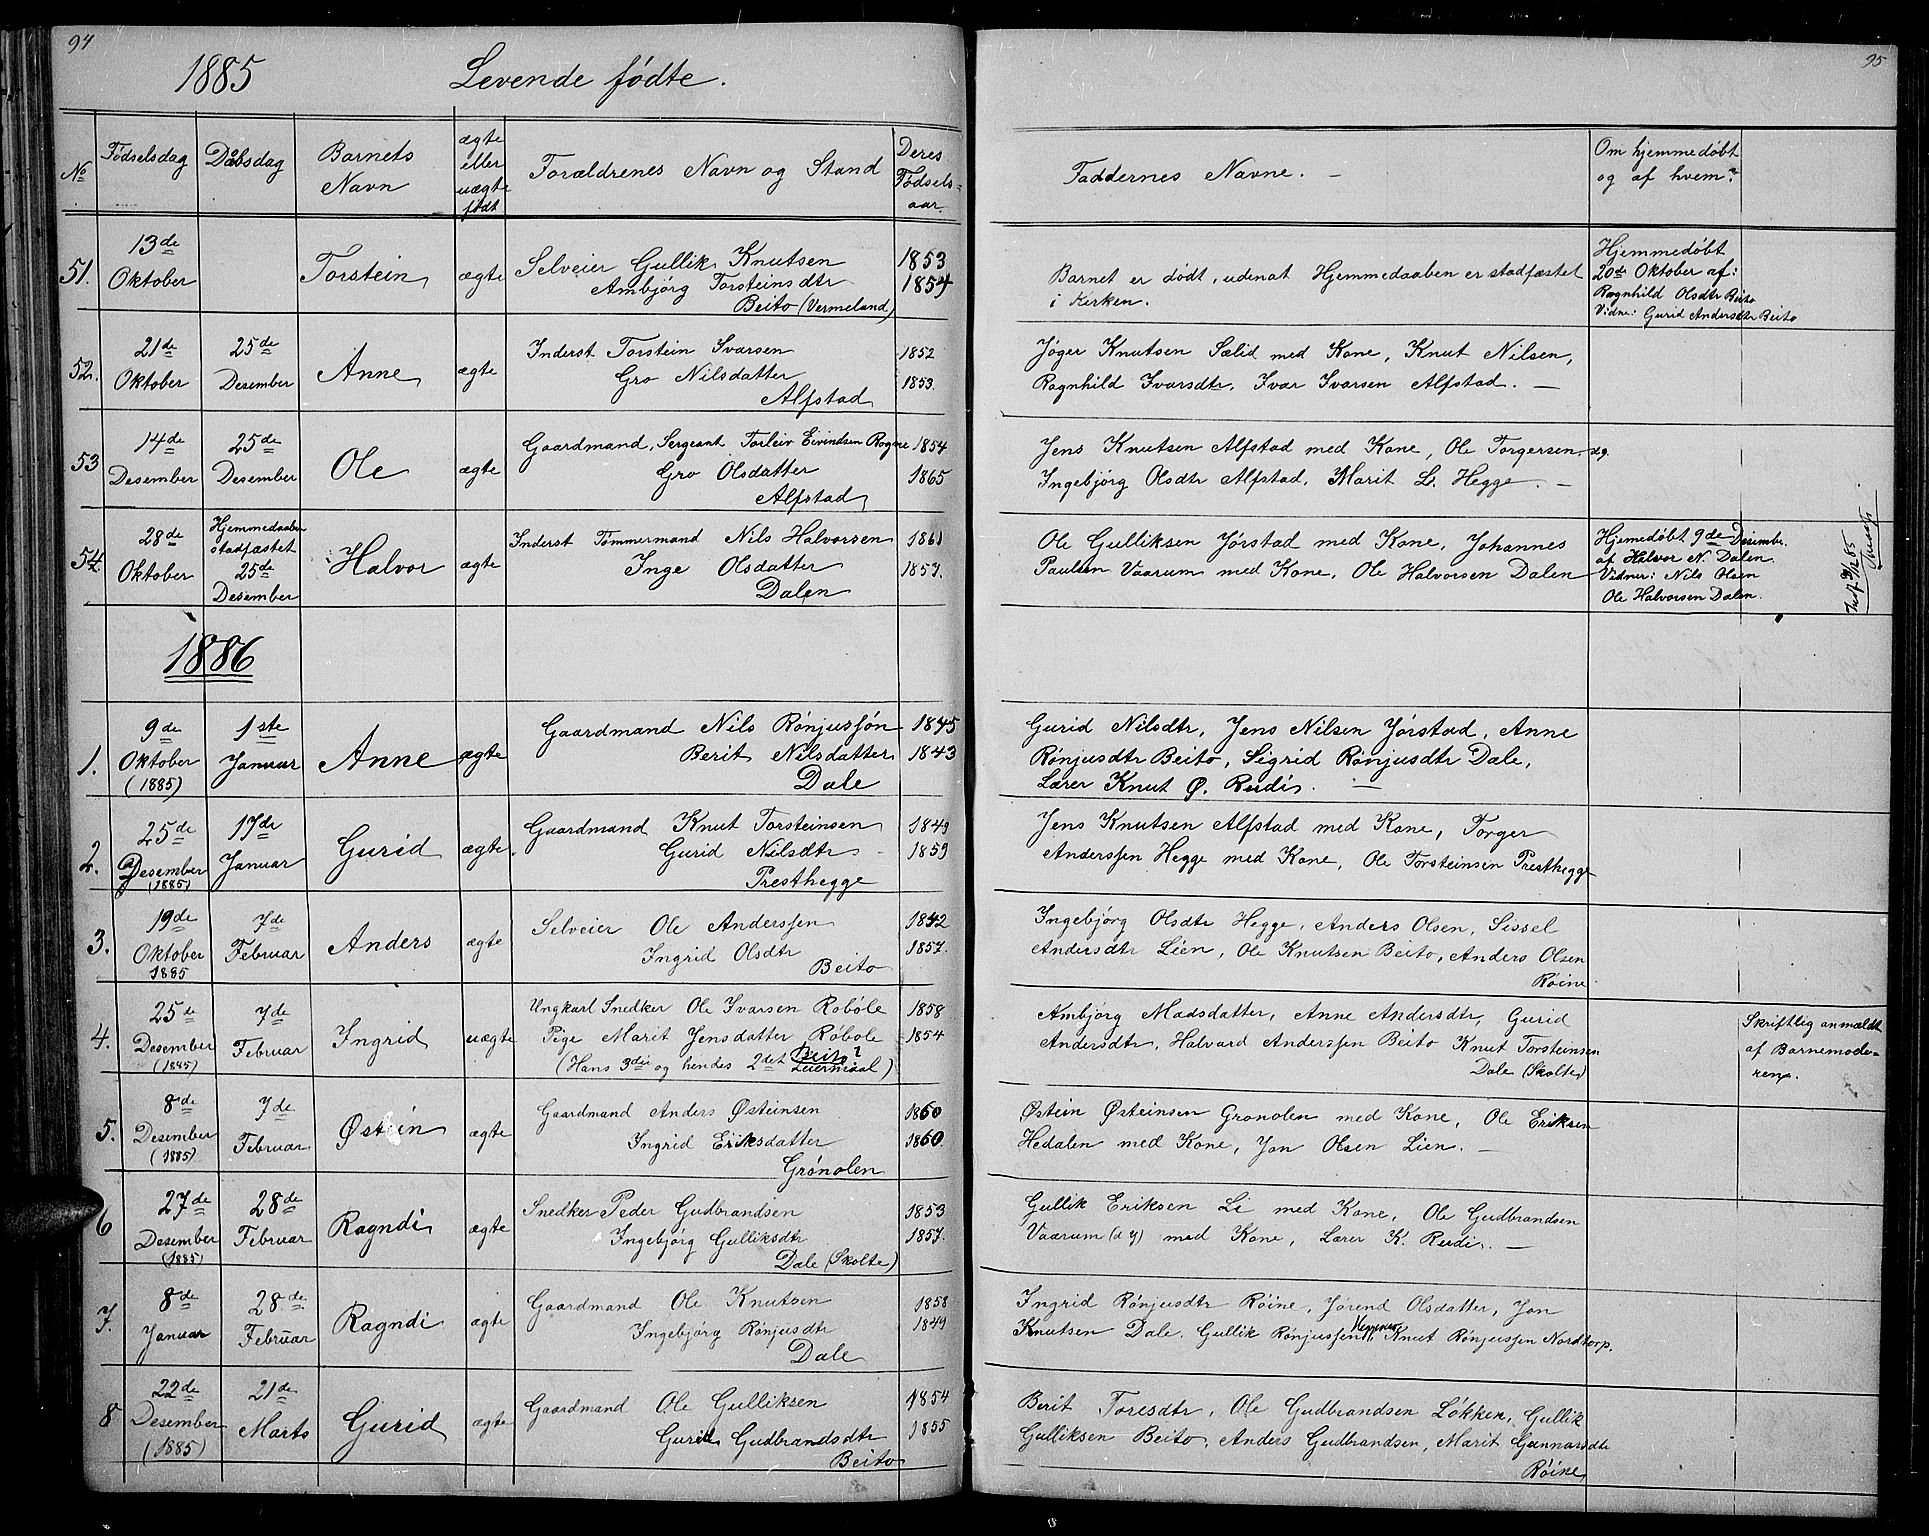 94
1885 Levende fødte.
No Fødselsdag Daabsdag Barnets Navn ægte eller uægte født Forældrenes Navn og Stand Deres Fødsels-aar.
51. 13de Oktober Torstein ægte Selveier Gullik Knutsen 1853
Ambjørg Torsteinsdtr 1854
Beito (Vermeland)
52. 21de Oktober 25de Desember Anne ægte Inderst Torstein Ivarsen 1852
Gro Nilsdatter 1853.
Alfstad
53 14de Desember 25de Desember Ole ægte Gaardmand, Sergeant Torleiv Eivindsen Rogne 1854
Gro Olsdatter 1865
Alfstad
54. 28de Oktober Hjemmedaaben stadfæstet 25de Desember Halvor ægte Inderst Tømmermand Nils Halvorsen 1861
Inge Olsdatter 1857.
Dalen
1886
1. 9de Oktober (1885) 1ste Januar Anne ægte Gaardmand Nils Rønjussøn 1845
Berit Nilsdatter 1843
Dale
2. 25de Desember (1885) 17de Januar Gurid ægte. Gaardmand Knut Torsteinsen 1849
Gurid Nilsdtr 1859
Presthegge
3. 19de Oktober 1885 7de Februar Anders ægte Selveier Ole Anderssen 1842
Ingrid Olsdtr 1857.
Beito
4. 25de Desember (1845) 7de Februar Ingrid uægte Ungkarl Snedker Ole Ivarsen Robøle 1858
Pige Marit Jensdatter Robole 1854
Beito?
(Hans 3die og hendes 2det Leiermaal)
5. 8de Desember (1885) 7de Februar Østein ægte Gaardmand Anders Østeinsen 1860
Ingrid Eriksdatter 1860.
Grønolen
6 27de Desember (1885) 28de Februar Ragndi ægte Snedker Peder Gudbrandsen 1853
Ingebjørg Gulliksdtr 1857.
Dale (Skolte)
7. 8de Januar 28de Februar Ragndi ægte Gaardmand Ole Knutsen 1858
Ingebjørg Rønjusdtr 1849
Dale
8 22de Desember (1885) 21de Marts Gurid ægte Gaardmand Ole Gulliksen 1854
Gurid Gudbrandsdtr 1855
Beito
95
Faddernes Navne. — Om hjemmedøbt og af hvem?
Barnet er dødt, udenat Hjemmedaaben er stadfæstet
i Kirken.
Hjemmedøbt
20de Oktober af:
Ragnhild Olsdtr Beito
Vidne: Gurid Andersdtr Beito
Jøger Knutsen Sælid med Kone, Knut Nilsen,
Ragnhild Ivarsdtr, Ivar Ivarsen Alfstad. —
Jens Knutsen Alfstad med Kone, Ole Torgersen, og.
Ingebjørg Olsdtr Alfstad, Marit L. Hegge. —
Ole Gulliksen Jørstad med Kone, Johannes
Paulsen Vaarum med Kone, Ole Halvorsen Dalen
Hjemedøbt 9de Desember.
af Halvor N. Dalen
Vidner: Nils Olsen
Ole Halvorsen Dalen.
Gurid Nilsdtr, Jens Nilsen Jørstad, Anne
Rønjusdtr Beito, Sigrid Rønjusdtr Dale,
Lærer Knut Ø. Rudi. —
Jens Knutsen Alfstad med Kone, Torger
Anderssen Hegge med Kone, Ole Torsteinsen Presthegge
Ingebjørg Olsdtr Hegge, Anders Olsen, Sissel
Andersdtr Lien, Ole Knutsen Beito, Anders Olsen
Røine.
Ambjørg Madsdatter, Anne Andersdtr, Gurid
Andersdtr, Halvard Anderssen Beito Knut Torsteinsen
Dale (Skolte)
Skriftlig anmældt
af Barnemode-
ren.
Østein Østeinsen Gronolen med Kone, Ole Eriksen
Hedalen med Kone, Jan Olsen Lien. —
Gullik Eriksen Li med Kone, Ole Gudbrandsen
Vaarum (d y) med Kone, Lærer K. Rudi. —
Ingrid Rønjusdtr Røine, Jørend Olsdatter, Jan
Knutsen Dale, Gullik Rønjussen, Knut Rønjussen Nordtorp.
Berit Toresdtr, Ole Gudbrandsen Løkken, Gullik
Gulliksen Beito, Anders Gudbrandsen, Marit Gunnarsdtr
Røine